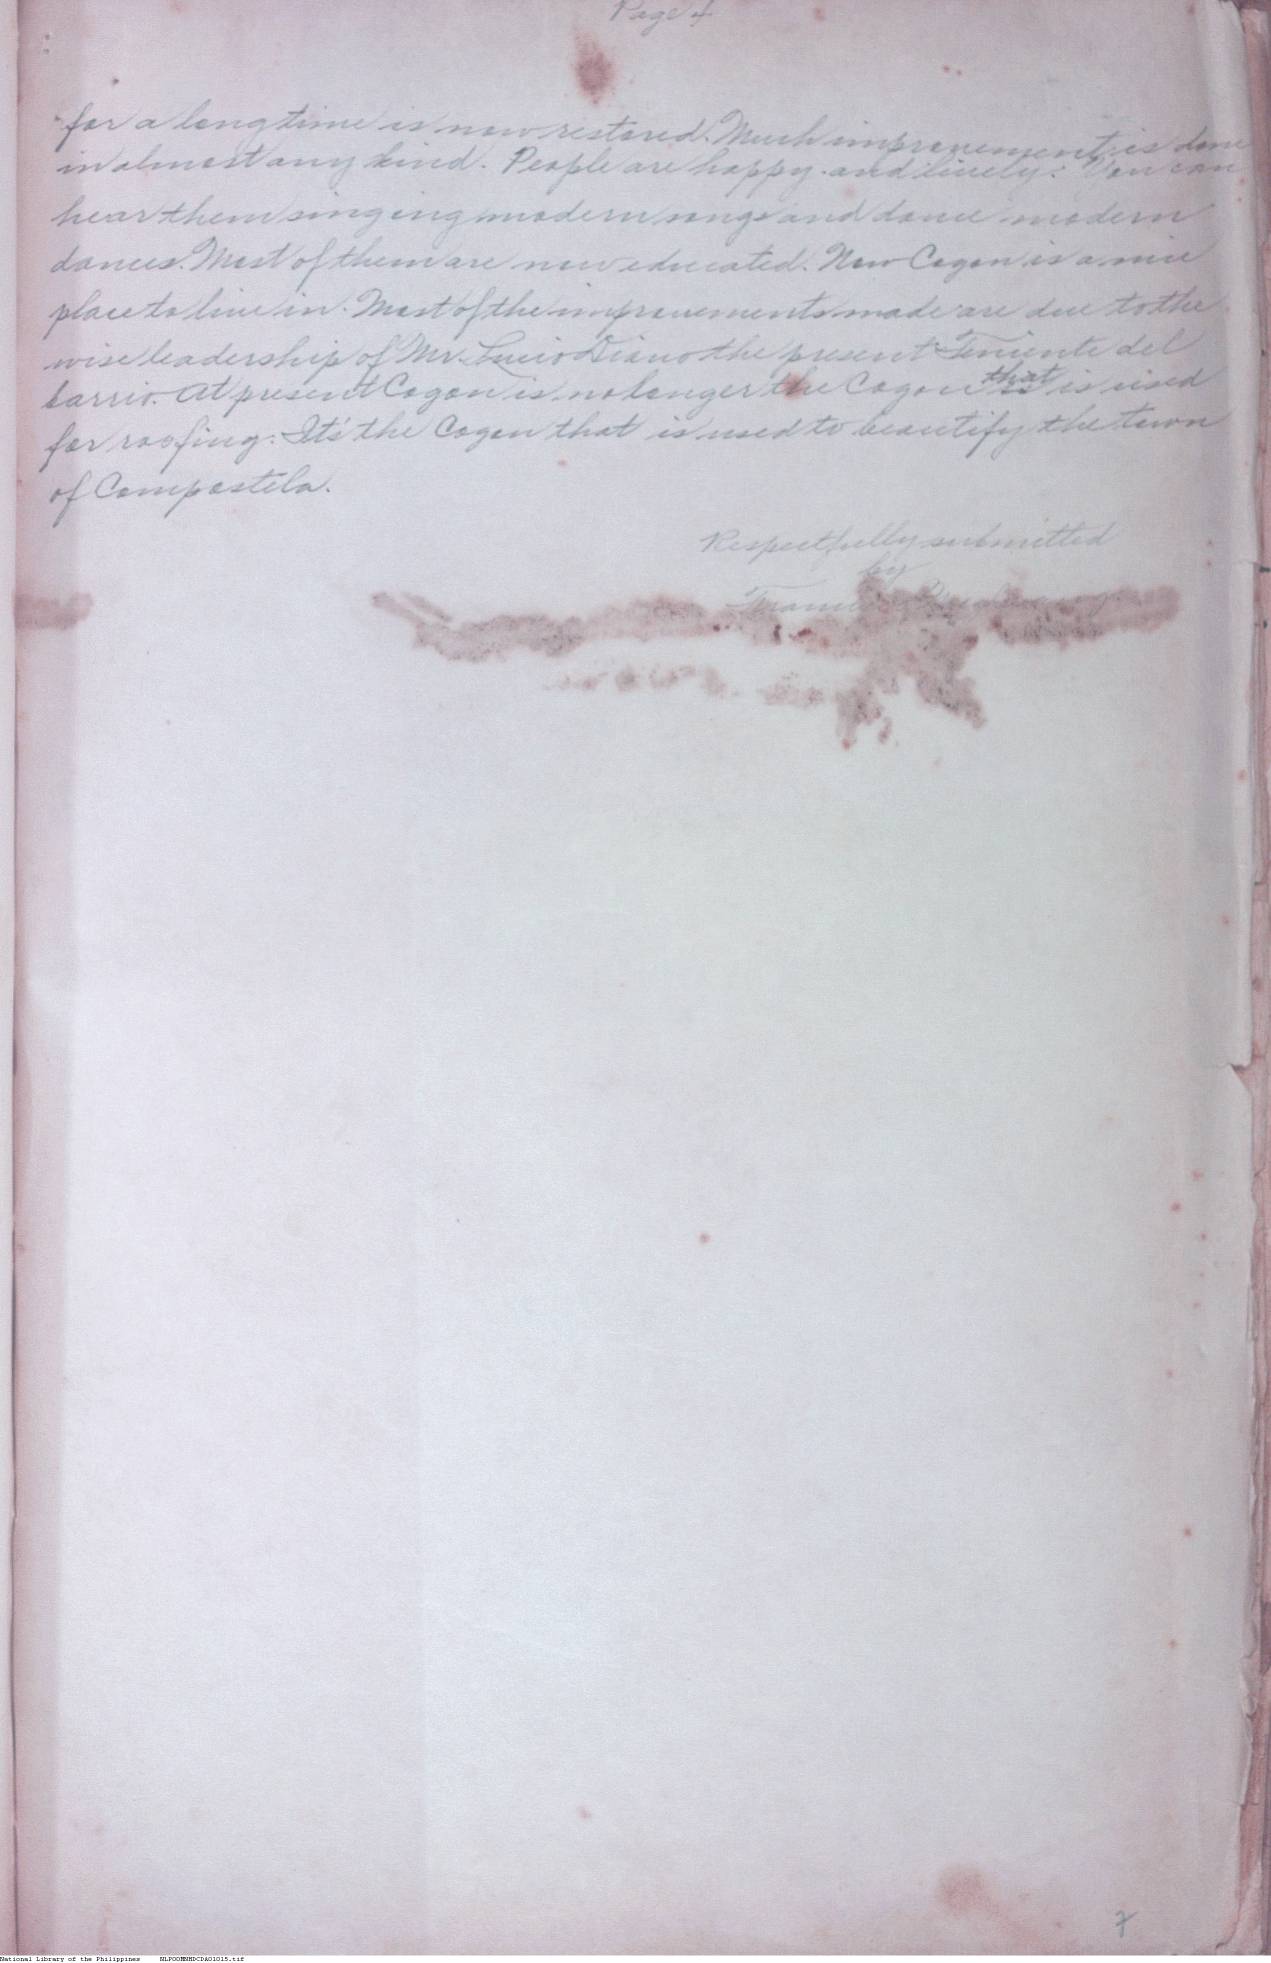 Page 4
for a long time is now restored. Much improvement is done
in almost any kind. People are happy and lively. You can
hear them singing modern songs and dance modern
dances. Most of them are now educated. Now Cogon is a nice
place to live in. Most of the improvements made are due to the
wise leadership of Mr. Lucio Diano the present Teniente del
barrio. At present Cogon is no longer the Cogon that is used
for roofing. It's the Cogon that is used to beautify the town
of Compostela.
Respectfully submitted
by
7
National Library of the Philippines NLPOOMNHDCDA01015.tif